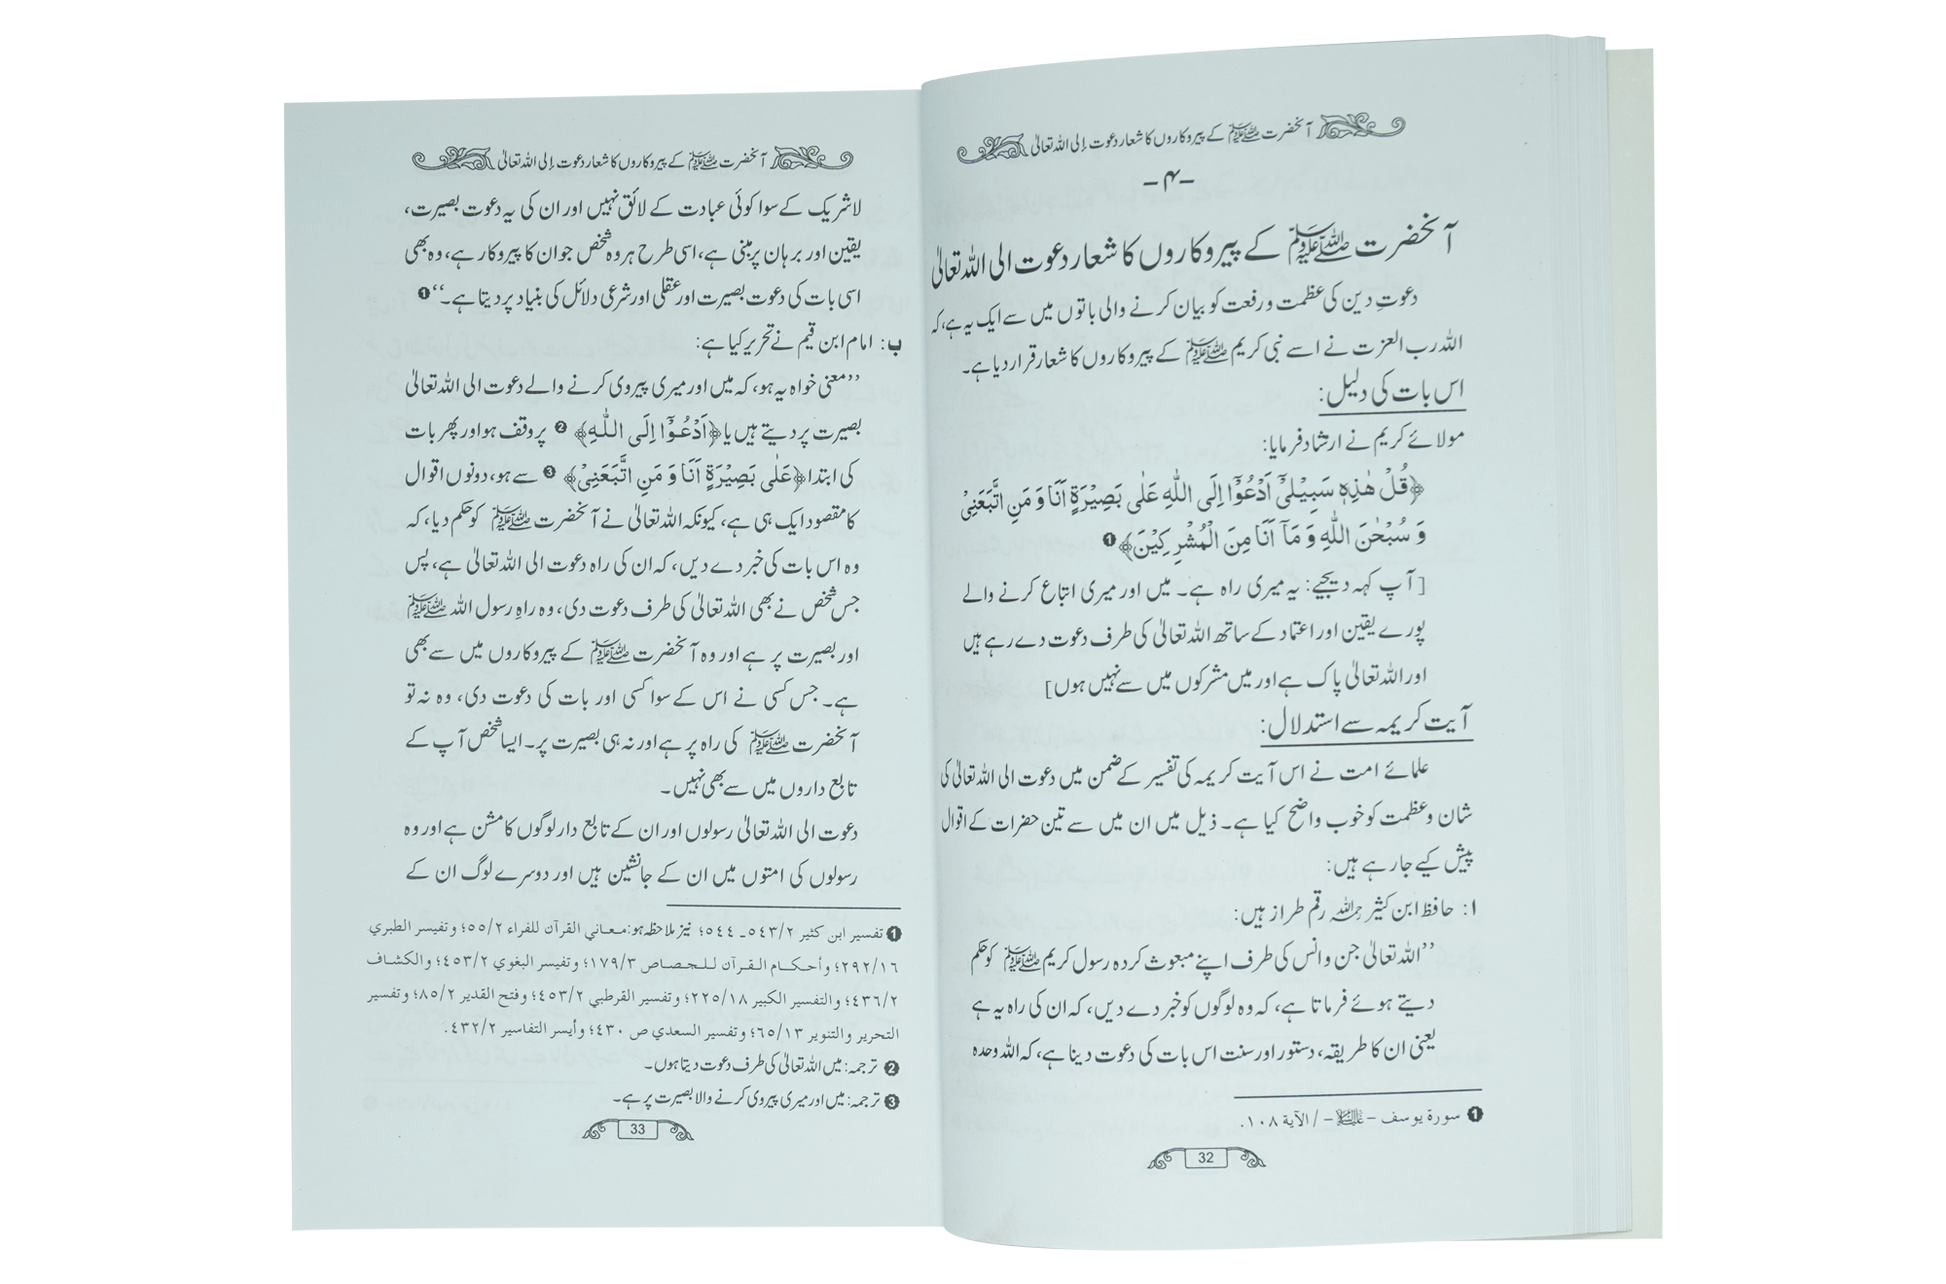 آنحضرت ﷺ کے پیروکاروں کا شعار دعوت إلی اللہ تعالیٰ
-۴-
آنحضرت ﷺ کے پیروکاروں کا شعار دعوت الی اللہ تعالیٰ
دعوتِ دین کی عظمت و رفعت کو بیان کرنے والی باتوں میں سے ایک یہ ہے، کہ
اللہ رب العزت نے اسے نبی کریم ﷺ کے پیروکاروں کا شعار قرار دیا ہے۔
اس بات کی دلیل:
مولائے کریم نے ارشاد فرمایا:
﴿قُلْ هٰذِهٖ سَبِیْلِیْٓ اَدْعُوْٓا اِلَی اللّٰهِ عَلٰی بَصِیْرَةٍ اَنَا وَ مَنِ اتَّبَعَنِیْ
وَ سُبْحٰنَ اللّٰهِ وَ مَآ اَنَا مِنَ الْمُشْرِکِیْنَ﴾ ❶
[آپ کہہ دیجیے: یہ میری راہ ہے۔ میں اور میری اتباع کرنے والے
پورے یقین اور اعتماد کے ساتھ اللہ تعالیٰ کی طرف دعوت دے رہے ہیں
اور اللہ تعالیٰ پاک ہے اور میں مشرکوں میں سے نہیں ہوں]
آیت کریمہ سے استدلال:
علمائے امت نے اس آیت کریمہ کی تفسیر کے ضمن میں دعوت الی اللہ تعالیٰ کی
شان و عظمت کو خوب واضح کیا ہے۔ ذیل میں ان میں سے تین حضرات کے اقوال
پیش کیے جا رہے ہیں:
ا: حافظ ابن کثیر رحمہ اللہ رقم طراز ہیں:
’’اللہ تعالیٰ جن و انس کی طرف اپنے مبعوث کردہ رسول کریم ﷺ کو حکم
دیتے ہوئے فرماتا ہے، کہ وہ لوگوں کو خبر دے دیں، کہ ان کی راہ یہ ہے
یعنی ان کا طریقہ، دستور اور سنت اس بات کی دعوت دینا ہے، کہ اللہ وحدہ
❶ سورة یوسف - علیہ السلام - / الآیة ۱۰۸.
32
آنحضرت ﷺ کے پیروکاروں کا شعار دعوت إلی اللہ تعالیٰ
لاشریک کے سوا کوئی عبادت کے لائق نہیں اور ان کی یہ دعوت بصیرت،
یقین اور برہان پر مبنی ہے، اسی طرح ہر وہ شخص جو ان کا پیروکار ہے، وہ بھی
اسی بات کی دعوت بصیرت اور عقلی اور شرعی دلائل کی بنیاد پر دیتا ہے۔‘‘ ❶
ب: امام ابن قیم نے تحریر کیا ہے:
’’معنی خواہ یہ ہو، کہ میں اور میری پیروی کرنے والے دعوت الی اللہ تعالیٰ
بصیرت پر دیتے ہیں یا ﴿اَدْعُوْٓا اِلَی اللّٰهِ﴾ ❷ پر وقف ہو اور پھر بات
کی ابتدا ﴿عَلٰی بَصِیْرَةٍ اَنَا وَ مَنِ اتَّبَعَنِیْ﴾ ❸ سے ہو، دونوں اقوال
کا مقصود ایک ہی ہے، کیونکہ اللہ تعالیٰ نے آنحضرت ﷺ کو حکم دیا، کہ
وہ اس بات کی خبر دے دیں، کہ ان کی راہ دعوت الی اللہ تعالیٰ ہے، پس
جس شخص نے بھی اللہ تعالیٰ کی طرف دعوت دی، وہ راہِ رسول اللہ ﷺ
اور بصیرت پر ہے اور وہ آنحضرت ﷺ کے پیروکاروں میں سے بھی
ہے۔ جس کسی نے اس کے سوا کسی اور بات کی دعوت دی، وہ نہ تو
آنحضرت ﷺ کی راہ پر ہے اور نہ ہی بصیرت پر۔ ایسا شخص آپ کے
تابع داروں میں سے بھی نہیں۔
دعوت الی اللہ تعالیٰ رسولوں اور ان کے تابع دار لوگوں کا مشن ہے اور وہ
رسولوں کی امتوں میں ان کے جانشین ہیں اور دوسرے لوگ ان کے
❶ تفسیر ابن کثیر ٥٤٣/٢ ـ ٥٤٤؛ نیز ملاحظہ ہو: معاني القرآن للفراء ٥٥/٢؛ وتفیسر الطبري
٢٩٢/١٦؛ وأحکام القرآن للجصاص ١٧٩/٣؛ وتفیسر البغوي ٤٥٣/٢؛ والکشاف
٤٣٦/٢؛ والتفسیر الکبیر ٢٢٥/١٨؛ وتفسیر القرطبي ٤٥٣/٢؛ وفتح القدیر ٨٥/٢؛ وتفسیر
التحریر والتنویر ٦٥/١٣؛ وتفسیر السعدي ص ٤٣٠؛ وأیسر التفاسیر ٤٣٢/٢.
❷ ترجمہ: میں اللہ تعالیٰ کی طرف دعوت دیتا ہوں۔
❸ ترجمہ: میں اور میری پیروی کرنے والا بصیرت پر ہے۔
33